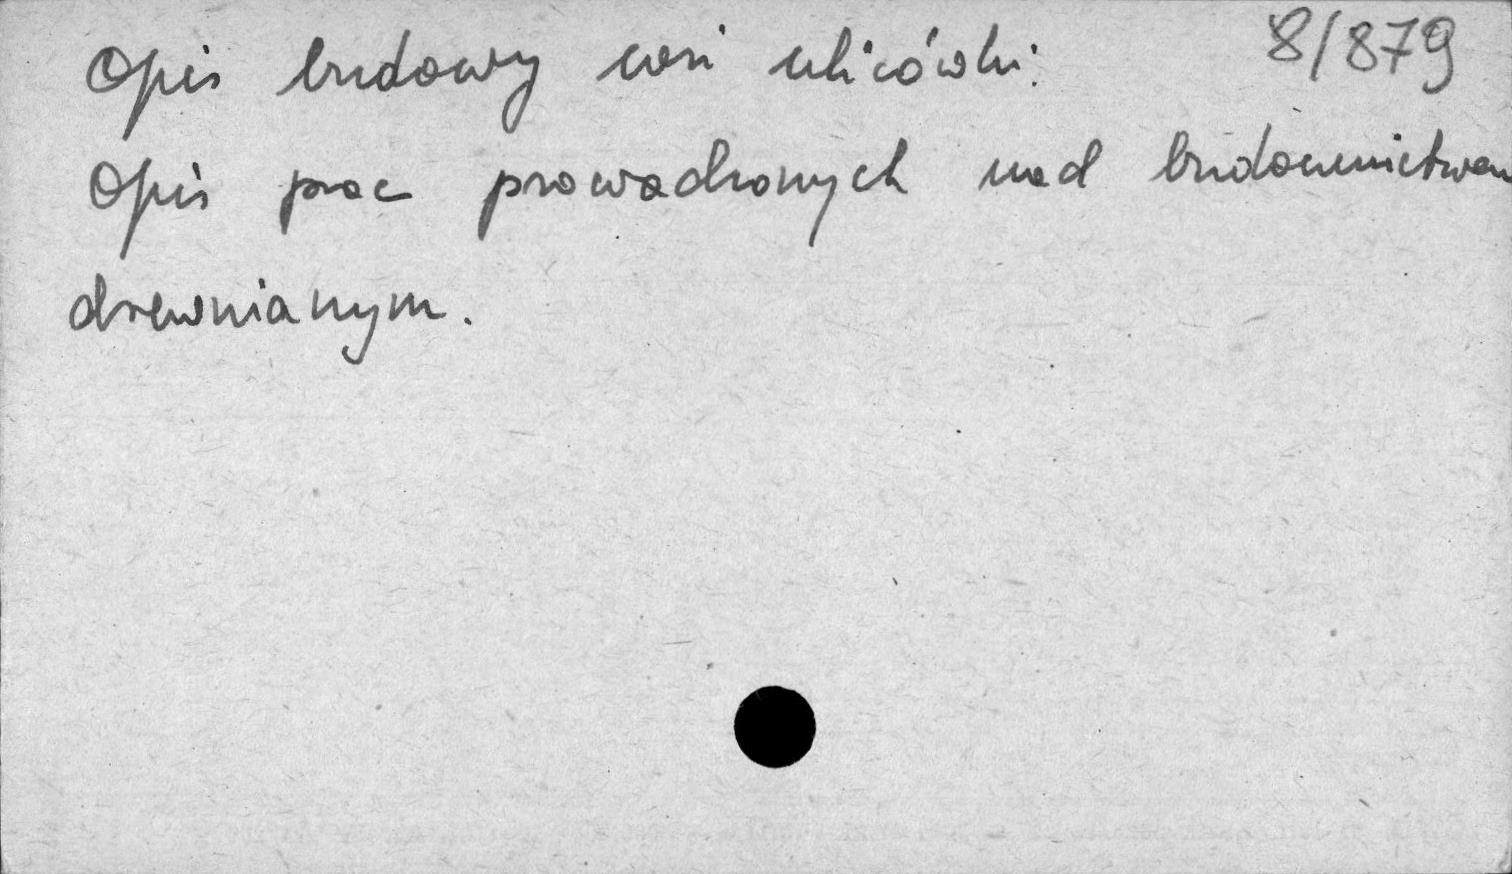 8/879
Opis budowy wsi ulicówki.
Opis prac prowadzonych nad budownictwem
drewnianym.